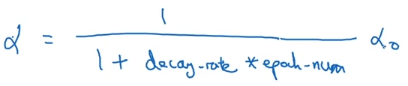 α = 1 / (1 + decay-rate * epoch-num) α₀